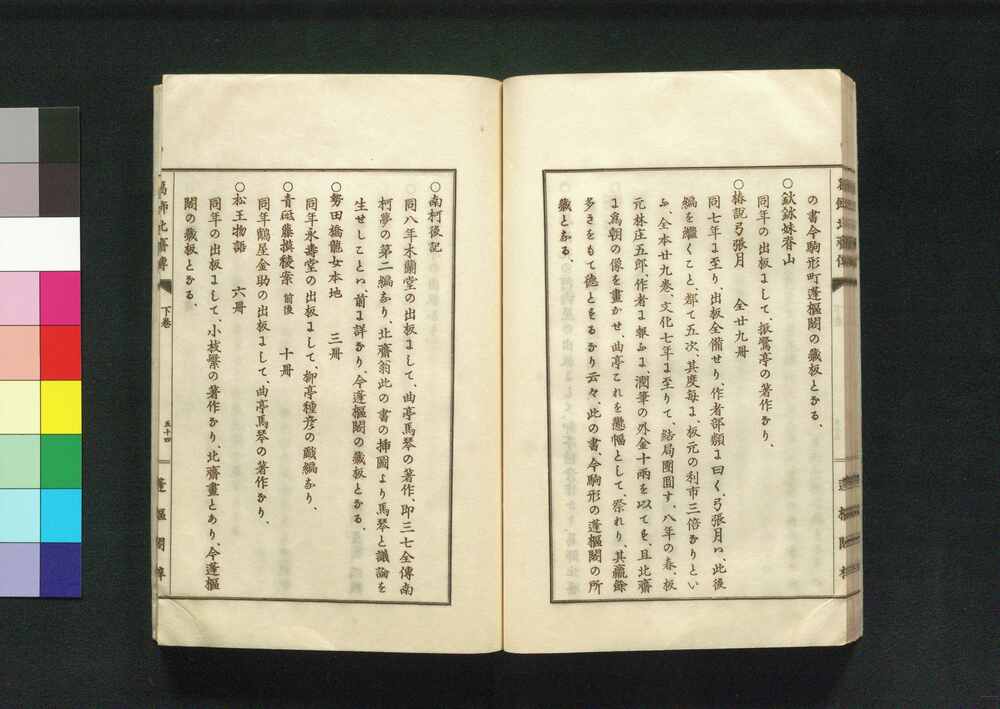 の書今駒形町蓬樞閣の藏板となる、
○敵討妹脊山
同年の出板にして、振鷺亭の著作なり、
○椿説弓張月　全廿九冊
同七年に至り、出板全備せり、作者部類に曰く、弓張月ハ、此後
編を繼ぐこと、都て五次、其度每に、板元の利市三倍なりとい
ふ、全本廿九卷、文化七年に至りて、結局團圓す、八年の春、板
元林庄五郎、作者に報ふに、潤筆の外金十兩を以てし、且北齋
に爲朝の像を畫かせ、曲亭これを懸幅として、祭れり、其贏餘
多きをもて德とするなり云々、此の書、今駒形の蓬樞閣の所
藏となる、
○南柯後記
同八年木蘭堂の出板にして、曲亭馬琴の著作、卽三七全傳南
柯夢の第二編なり、北齋翁此の書の挿圖より馬琴と議論を
生せしことハ、前に詳なり、今蓬樞閣の藏板となる、
○勢田橋龍女本地　三冊
同年永壽堂の出板にして、柳亭種彦の戲編なり、
○青砥藤摸稜案　前後　十冊
同年鶴屋金助の出板にして、曲亭馬琴の著作なり、
○松王物語　六冊
同年の出板にして、小枝繁の著作なり、北齋畫とあり、今蓬樞
閣の藏板となる、
葛飾北齋傳　下卷　五十四　蓬樞閣梓